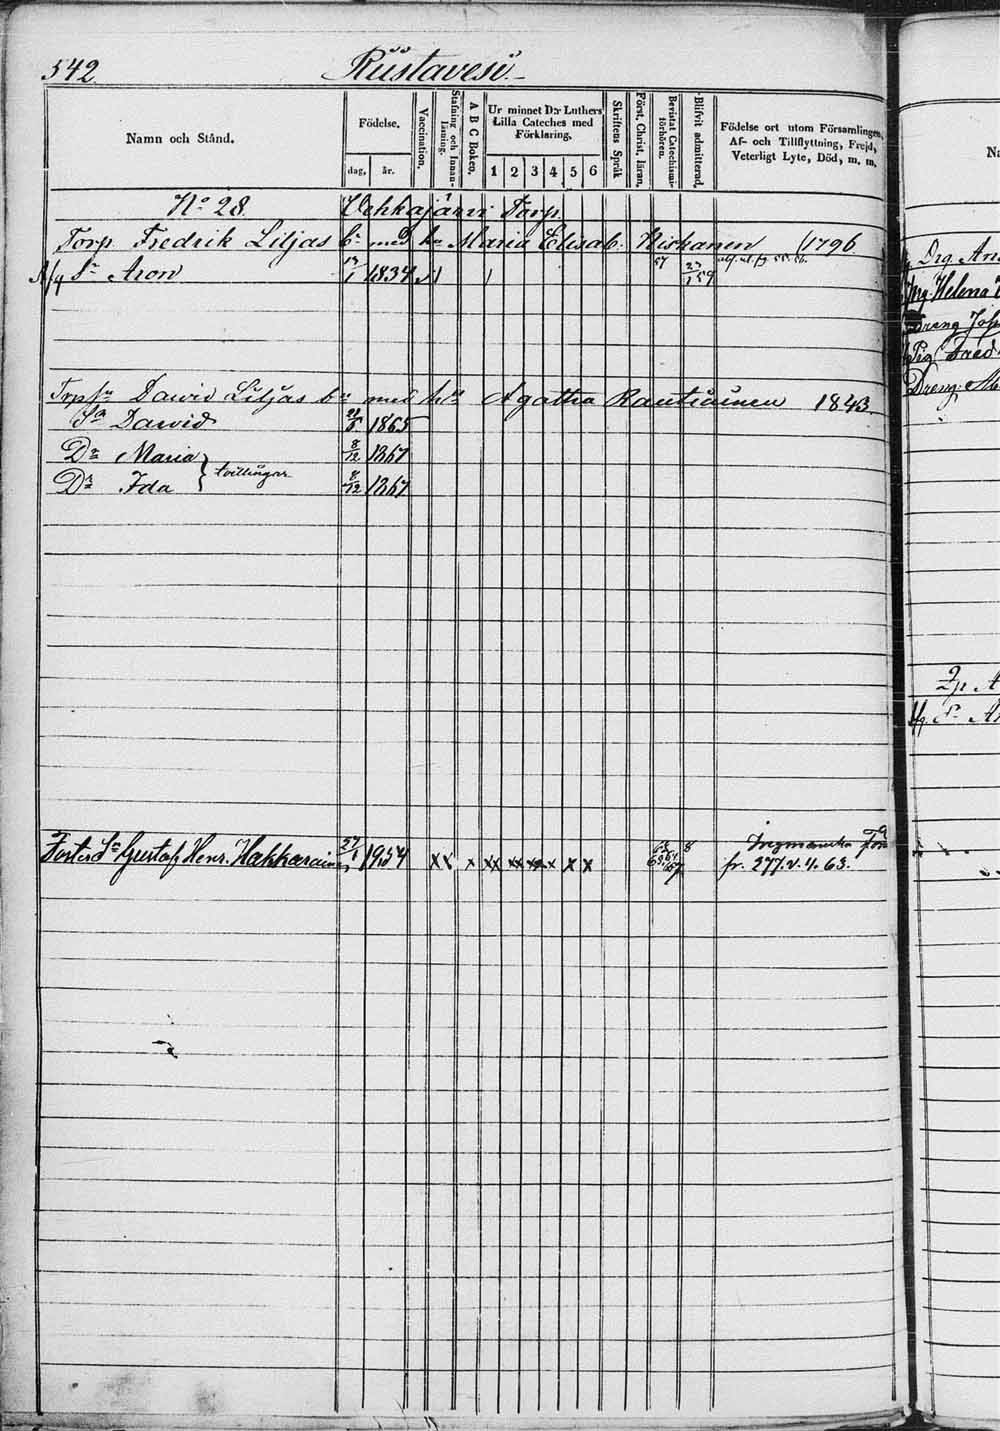 542. Rüstavesi.
Namn och Stånd.
Födelse.
dag, år.
Vaccination.
Stafning och Innan-
läsning.
A B C Boken.
Ur minnet D:r Luthers
Lilla Cateches med
Förklaring.
1 2 3 4 5 6
Skriftens Språk
Först. Christ. läran.
Bevistat Catechismi-
förhören.
Blifvit admitterad.
Födelse ort utom Församlingen,
Af- och Tillflyttning, Frejd,
Veterligt Lyte, Död, m. m.
No 28. Vehkajärvi Torp
Torp. Fredrik Liljas Cn med hu Maria Elisab: Niskanen 1796.
Sn Aron 1834 57 23/1 59
Torp Sn Dawid Liljas bn med hu Agatha Rautiainen 1843.
Sn Dawid 1865
Dr Maria 8/12 1867
tvillingar
Dr Ida 8/12 1867
Foster Sn Gustaf Henr. Hakkarainen 27/1 1954 x x x x x x x x x x x x 8
fr. 277. v. 4. 63.
Drg
Helena
Dreng
Pig
Dreng